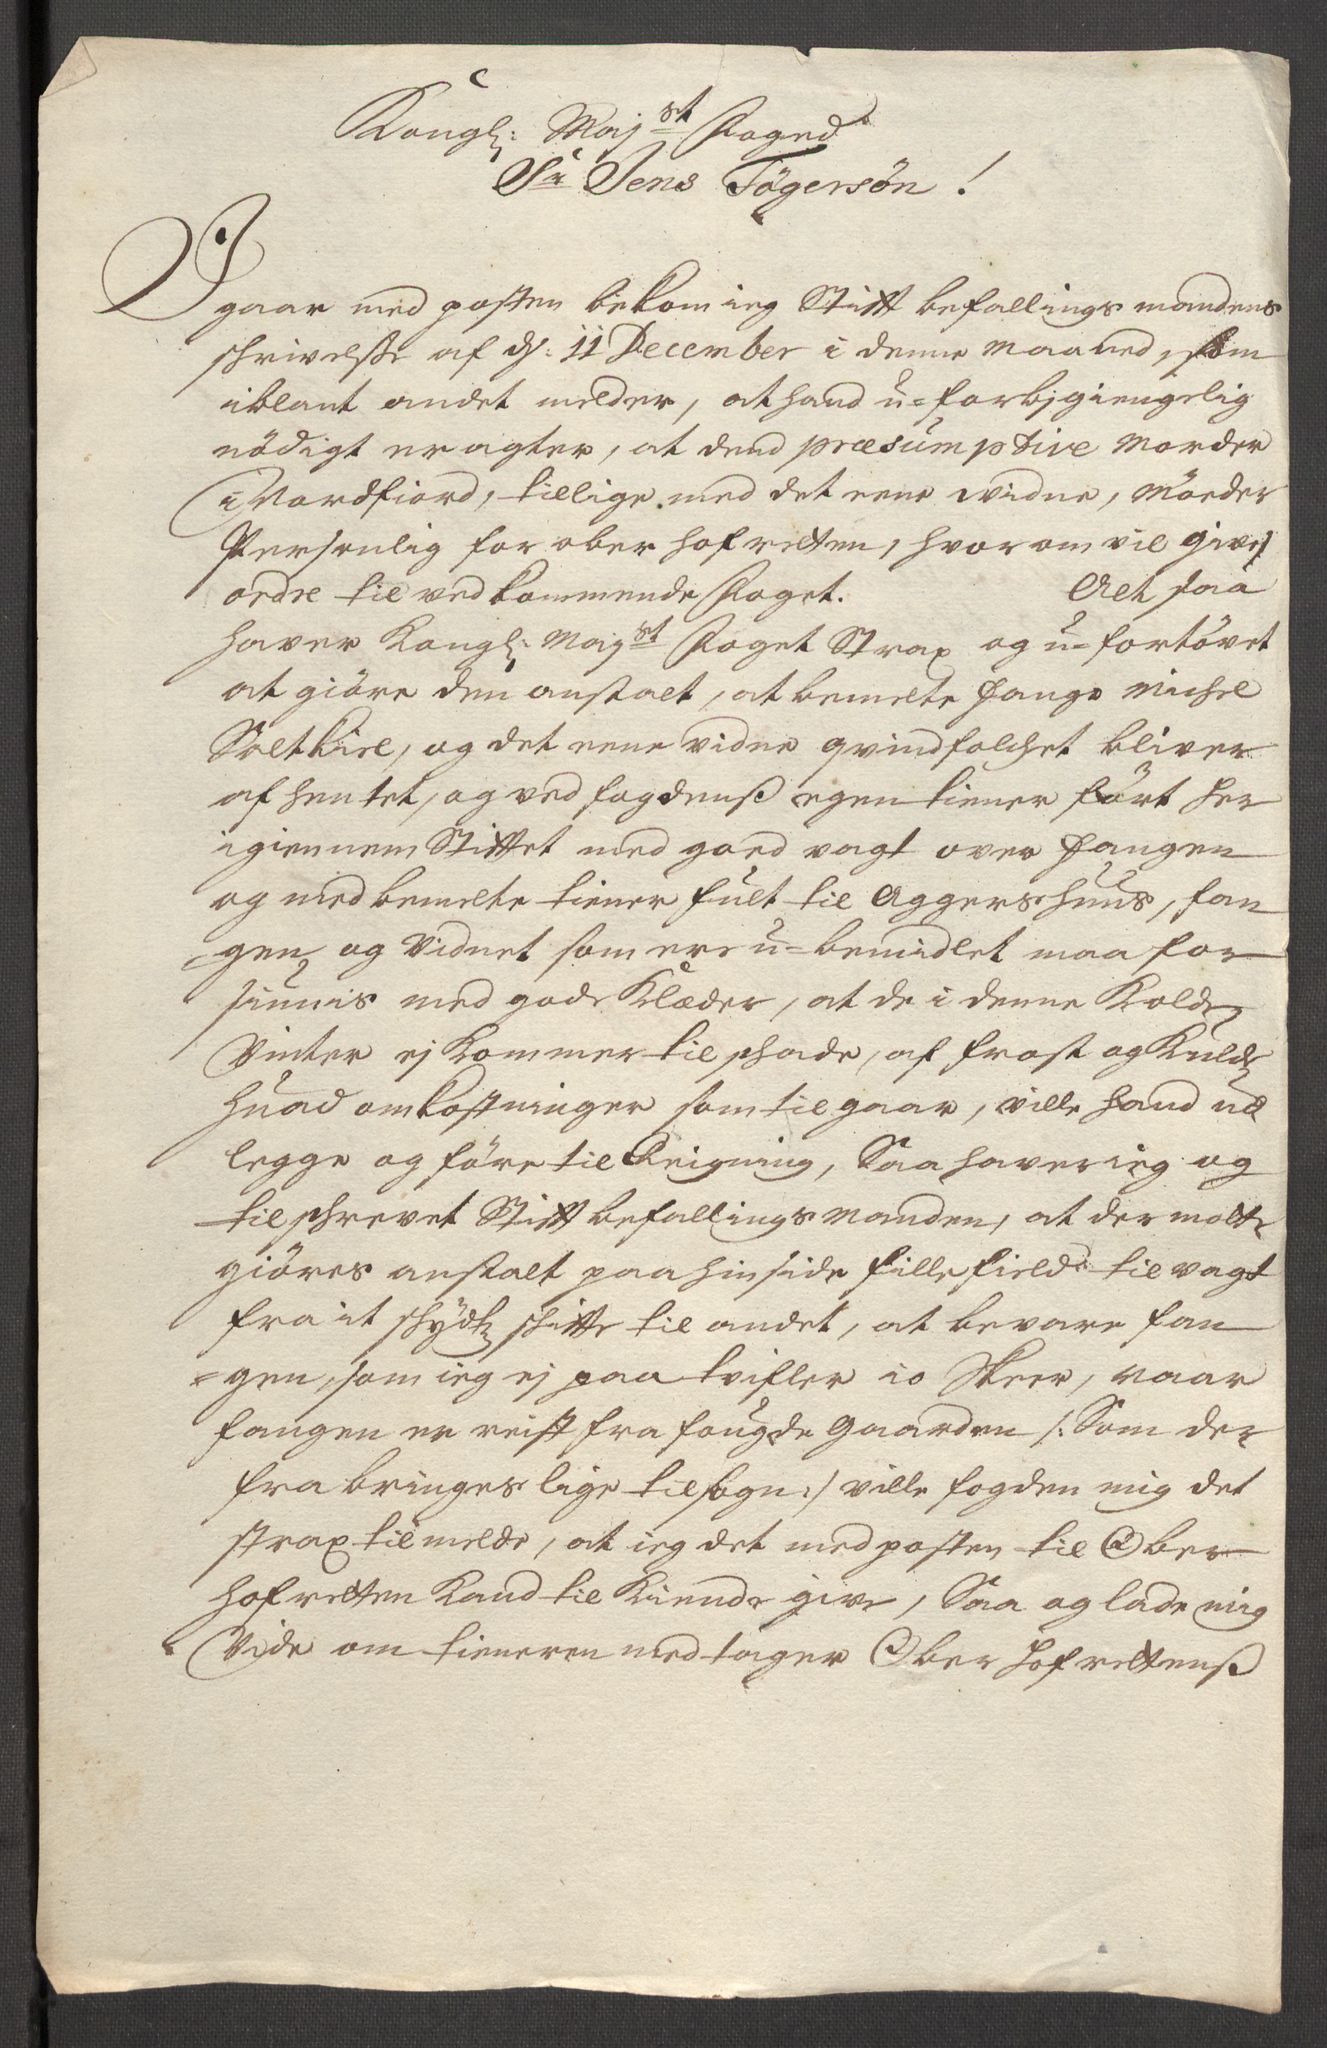 Kongl: Maj.st Foged
Sr Jens Tögersön!
I gaar med posten bekom ieg Stift befallings mandens
schrivelse af d: 11 December i denne maaned, som
iblant andet melder, at hand u-forbigiengelig
nödigt eragter, at dend præsumptive morder
i Nordfiord, tillige med det eene vidne, möeder
Personlig for ober hof retten, hvorom vil gives
ordre til vedkommende Foget. Alt saa
haver Kongl: Maj.st Foget Strax og u-fortövet
at giöre den anstalt, at bemelte fange Michel
og det eene vidne qvindfolchet bliver
af hentet, og ved fogdenß egen tiener fört her
igiennem Stiftet med goed vagt over fangen
og med bemelte tiener fult til Aggershuus, fan
-gen og Vidnet som ere u-bemidlet maa for
siunis med gode Klæder, at de i denne Kolde
Vinter ej kommer til schade, af frost og Kulde
huad omkostninger som til gaar, ville hand ud
legge og före til Reigning, Saa haver ieg og
tilschrevet Stift befallings manden, at der motte
giöres anstalt paa hin side fillefield til vagt
fra it schydtz schifte til andet, at bevare fan
-gen, som ieg ej paa tvifler io Skeer, naar
fangen er reist fra fougde gaarden /: Som der
fra bringes lige til Sogn :/ ville fogden mig det
strax tilmelde, at ieg det med posten til Ober
hof retten Kand til Kiende give, Saa og lade mig
Vide om tieneren medtager Ober hof rettenß